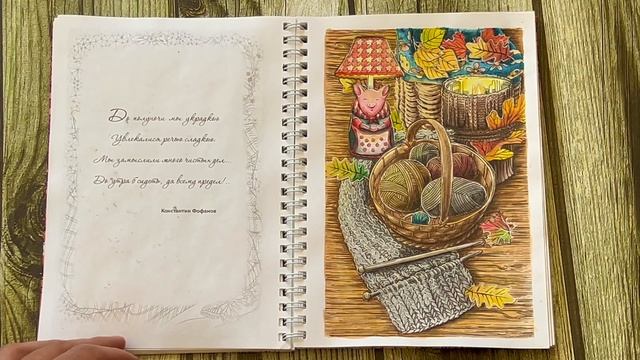 До полуночи мы украдкою
Увлекались речью сладкою.
Мы замыслили много чистых дел...
До утра б сидеть, да всему предел!..
Константин Фофанов